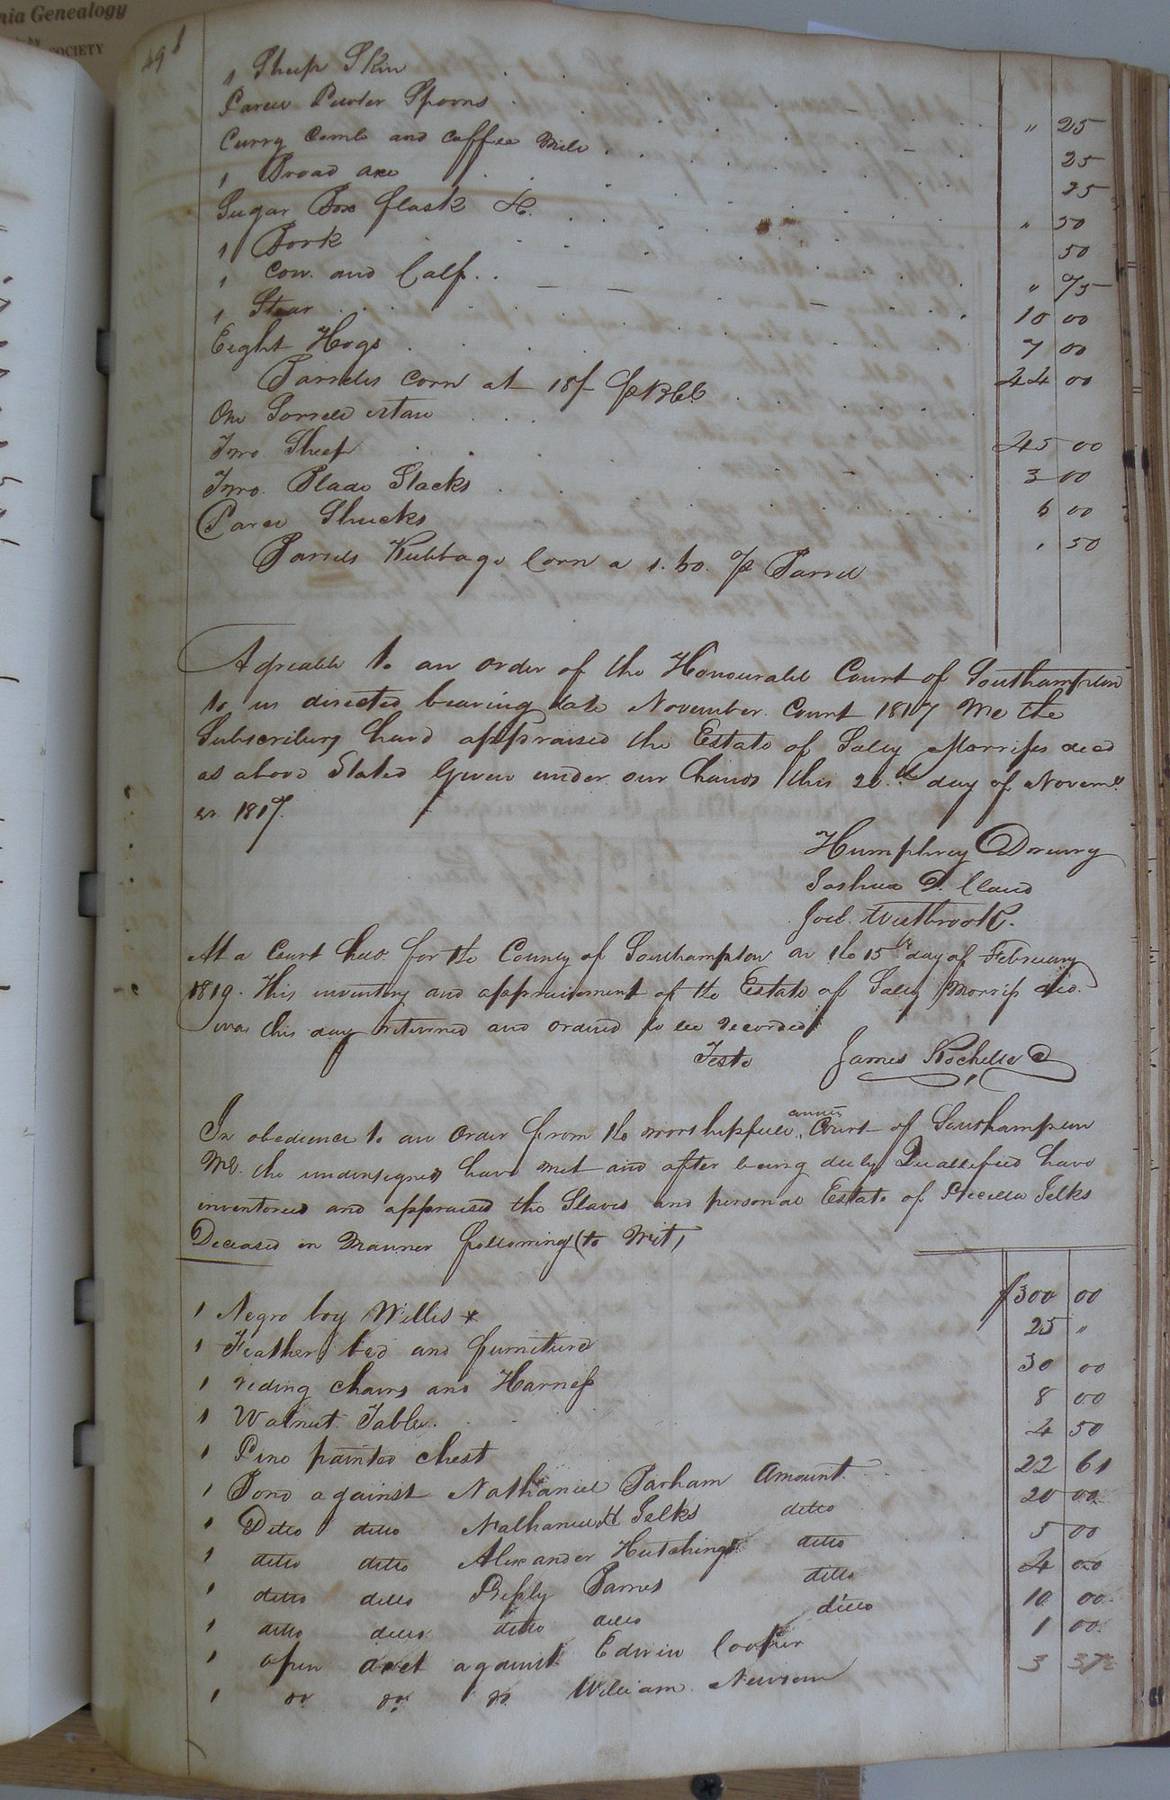 nia Genealogy
SOCIETY
491
1 Sheep Skin
Parcel Pewter Spoons " 25
Curry Comb and Coffee Mill 25
1 Broad axe 25
Sugar Box flask &c. " 50
1 Bork 50
1 Cow and Calf " 75
1 Stear 10 00
Eight Hogs 7 00
Barrels Corn at 18/ p Bbl 44 00
One Sorrell
Two Sheep 45 00
Two Blade Stacks 3 00
Parcel Shucks 6 00
Barrels Nubbage Corn a 1.50 p Barrel " 50
Agreable to an order of the Honourable Court of Southampton
to us directed bearing date November Court 1817 We the
Subscribers have appraised the Estate of Sally Morriss decd
as above Stated Given under our hands this 20th day of Novem
er 1817.
Humphrey Drewry
Joshua D. Claud
Joel Westbrook
At a Court held for the County of Southampton on the 15th day of February
1819. This inventory and appraisement of the Estate of Sally Morriss decd.
was this day returned and ordered to be recorded
Teste James Rochelle C
In obedience to an Order from the worshipfull Court of Southampton
We the undersigned have met and after being duly Quallified have
inventoried and appraised the Slaves and personal Estate of Silks
Deceased in Manner following (to Wit)
1 Negro boy Willis * $300 00
1 Feather bed and furniture 25 "
1 reding chairs and Harness 30 00
1 Walnut Table 8 00
1 Pine painted chest 4 50
1 Bond against Nathaniel Parham Amount 22 61
1 Ditto ditto Nathaniel H Silks ditto 20 00
1 ditto ditto Alexander Hutchings ditto 5 00
1 ditto ditto James ditto 4 00
1 ditto ditto ditto ditto ditto 10 00
1 open acct against Edwin Cooper 1 00
1 do do do William Newsom 3 37½